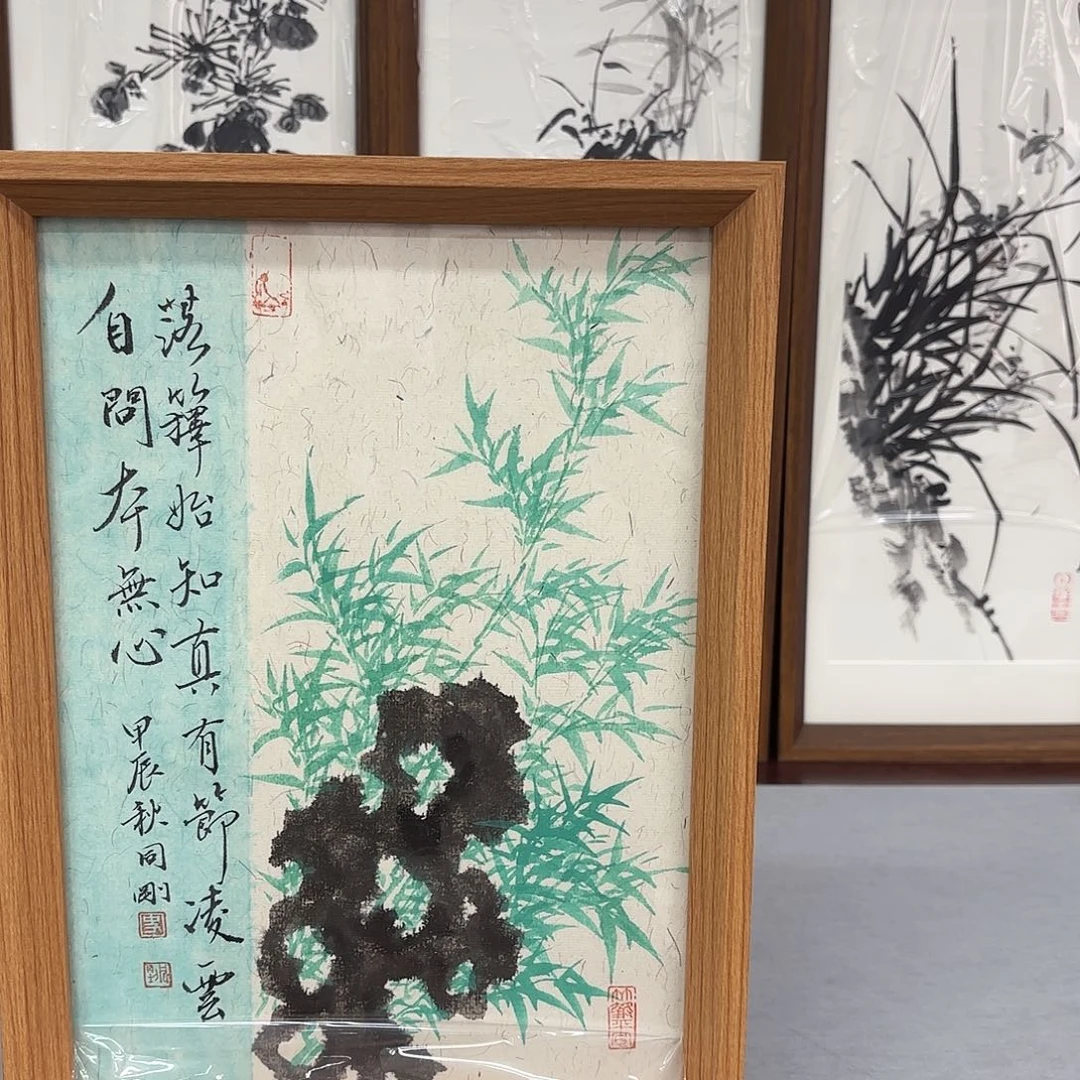 落籜始知真有節凌雲
自問本無心
甲辰秋同剛